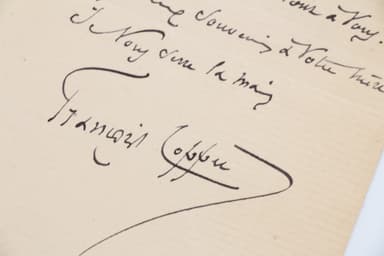 à Vous.
Souvenir à Votre mère
& Vous serre la main
François Coppée